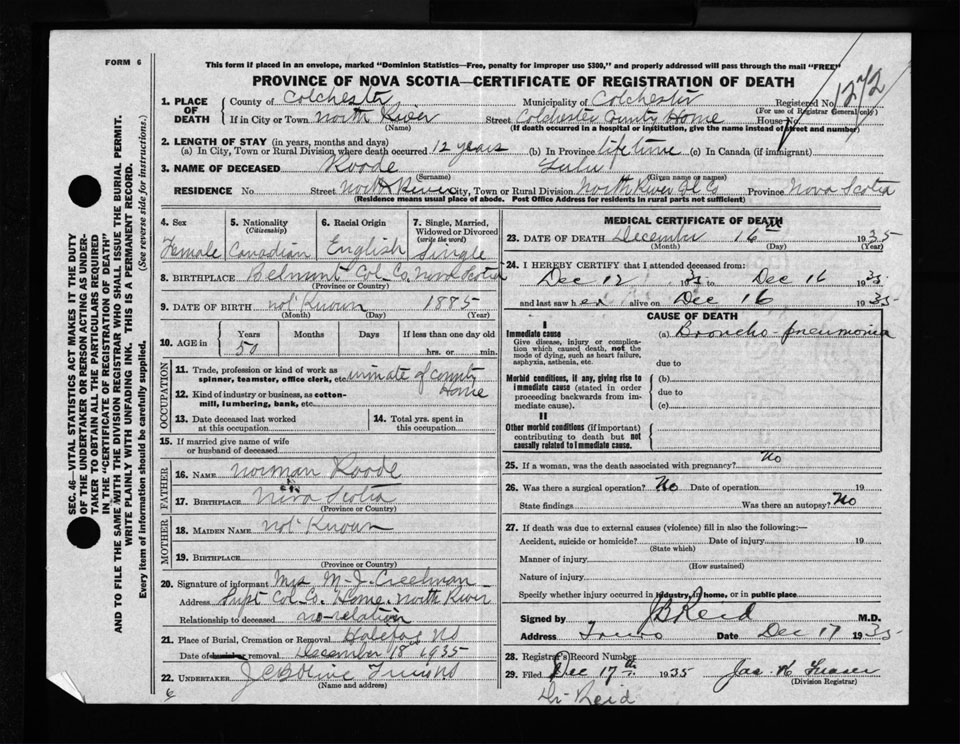 FORM 6
This form if placed in an envelope, marked "Dominion Statistics—Free, penalty for improper use $300," and properly addressed will pass through the mail "FREE"
PROVINCE OF NOVA SCOTIA—CERTIFICATE OF REGISTRATION OF DEATH
SEC. 46—VITAL STATISTICS ACT MAKES IT THE DUTY
OF THE UNDERTAKER OR PERSON ACTING AS UNDER-
TAKER TO OBTAIN ALL THE PARTICULARS REQUIRED
IN THE "CERTIFICATE OF REGISTRATION OF DEATH"
AND TO FILE THE SAME WITH THE DIVISION REGISTRAR WHO SHALL ISSUE THE BURIAL PERMIT.
WRITE PLAINLY WITH UNFADING INK. THIS IS A PERMANENT RECORD.
Every item of information should be carefully supplied. (See reverse side for instructions.)
1. PLACE OF DEATH County of Colchester Municipality of Colchester Registered No. 1272
(For use of Registrar General only)
If in City or Town North River Street Colchester County Home House No.
(Name) (If death occurred in a hospital or institution, give the name instead of street and number)
2. LENGTH OF STAY (in years, months and days)
(a) In City, Town or Rural Division where death occurred 12 years (b) In Province lifetime (c) In Canada (if immigrant)
3. NAME OF DECEASED Roode Lulu
(Surname) (Given name or names)
RESIDENCE No. Street North River City, Town or Rural Division North River Col Co Province Nova Scotia
(Residence means usual place of abode. Post Office Address for residents in rural parts not sufficient)
4. Sex Female
5. Nationality (Citizenship) Canadian
6. Racial Origin English
7. Single, Married, Widowed or Divorced (write the word) Single
8. BIRTHPLACE Belmont Col. Co. Nova Scotia
(Province or Country)
9. DATE OF BIRTH not Known 1885
(Month) (Day) (Year)
10. AGE in Years 50 Months Days If less than one day old
hrs. or min.
OCCUPATION
11. Trade, profession or kind of work as spinner, teamster, office clerk, etc. inmate of county Home
12. Kind of industry or business, as cotton-mill, lumbering, bank, etc.
13. Date deceased last worked at this occupation
14. Total yrs. spent in this occupation
15. If married give name of wife or husband of deceased
FATHER
16. NAME Norman Roode
17. BIRTHPLACE Nova Scotia
(Province or Country)
MOTHER
18. MAIDEN NAME not Known
19. BIRTHPLACE
(Province or Country)
20. Signature of informant Mrs M. J. Creelman
Address Supt Col. Co. Home. North River
Relationship to deceased no relation
21. Place of Burial, Cremation or Removal Halifax NS
Date of burial or removal December 18 1935
22. UNDERTAKER
(Name and address)
MEDICAL CERTIFICATE OF DEATH
23. DATE OF DEATH December 16th 1935
(Month) (Day) (Year)
24. I HEREBY CERTIFY that I attended deceased from:
Dec 12 1935 to Dec 16 1935
and last saw her alive on Dec 16 1935
CAUSE OF DEATH
I
Immediate cause
Give disease, injury or complication which caused death, not the mode of dying, such as heart failure, asphyxia, asthenia, etc.
(a) Broncho-pneumonia
due to
Morbid conditions, if any, giving rise to immediate cause (stated in order proceeding backwards from immediate cause).
(b)
due to
(c)
II
Other morbid conditions (if important) contributing to death but not causally related to immediate cause.
25. If a woman, was the death associated with pregnancy? No
26. Was there a surgical operation? No Date of operation 19
State findings Was there an autopsy? No
27. If death was due to external causes (violence) fill in also the following:—
Accident, suicide or homicide? Date of injury 19
(State which)
Manner of injury
(How sustained)
Nature of injury
Specify whether injury occurred in industry, in home, or in public place
Signed by J B Reid M.D.
Address Truro Date Dec 17 1935
28. Registrar's Record Number
29. Filed Dec 17th 1935 Jas. K Fraser
(Division Registrar)
Dr Reid